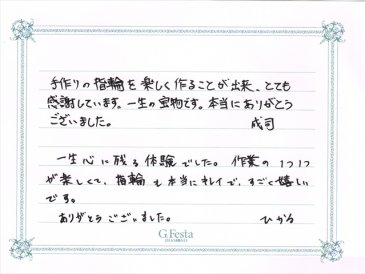 手作りの指輪を楽しく作ることが出来、とても
感謝しています。一生の宝物です。本当にありがとう
ございました。
成司
一生心に残る体験でした。作業の1つ1つ
が楽しくて、指輪も本当にキレイで、すごく嬉しい
です。
ありがとうございました。
ひかる
G.Festa